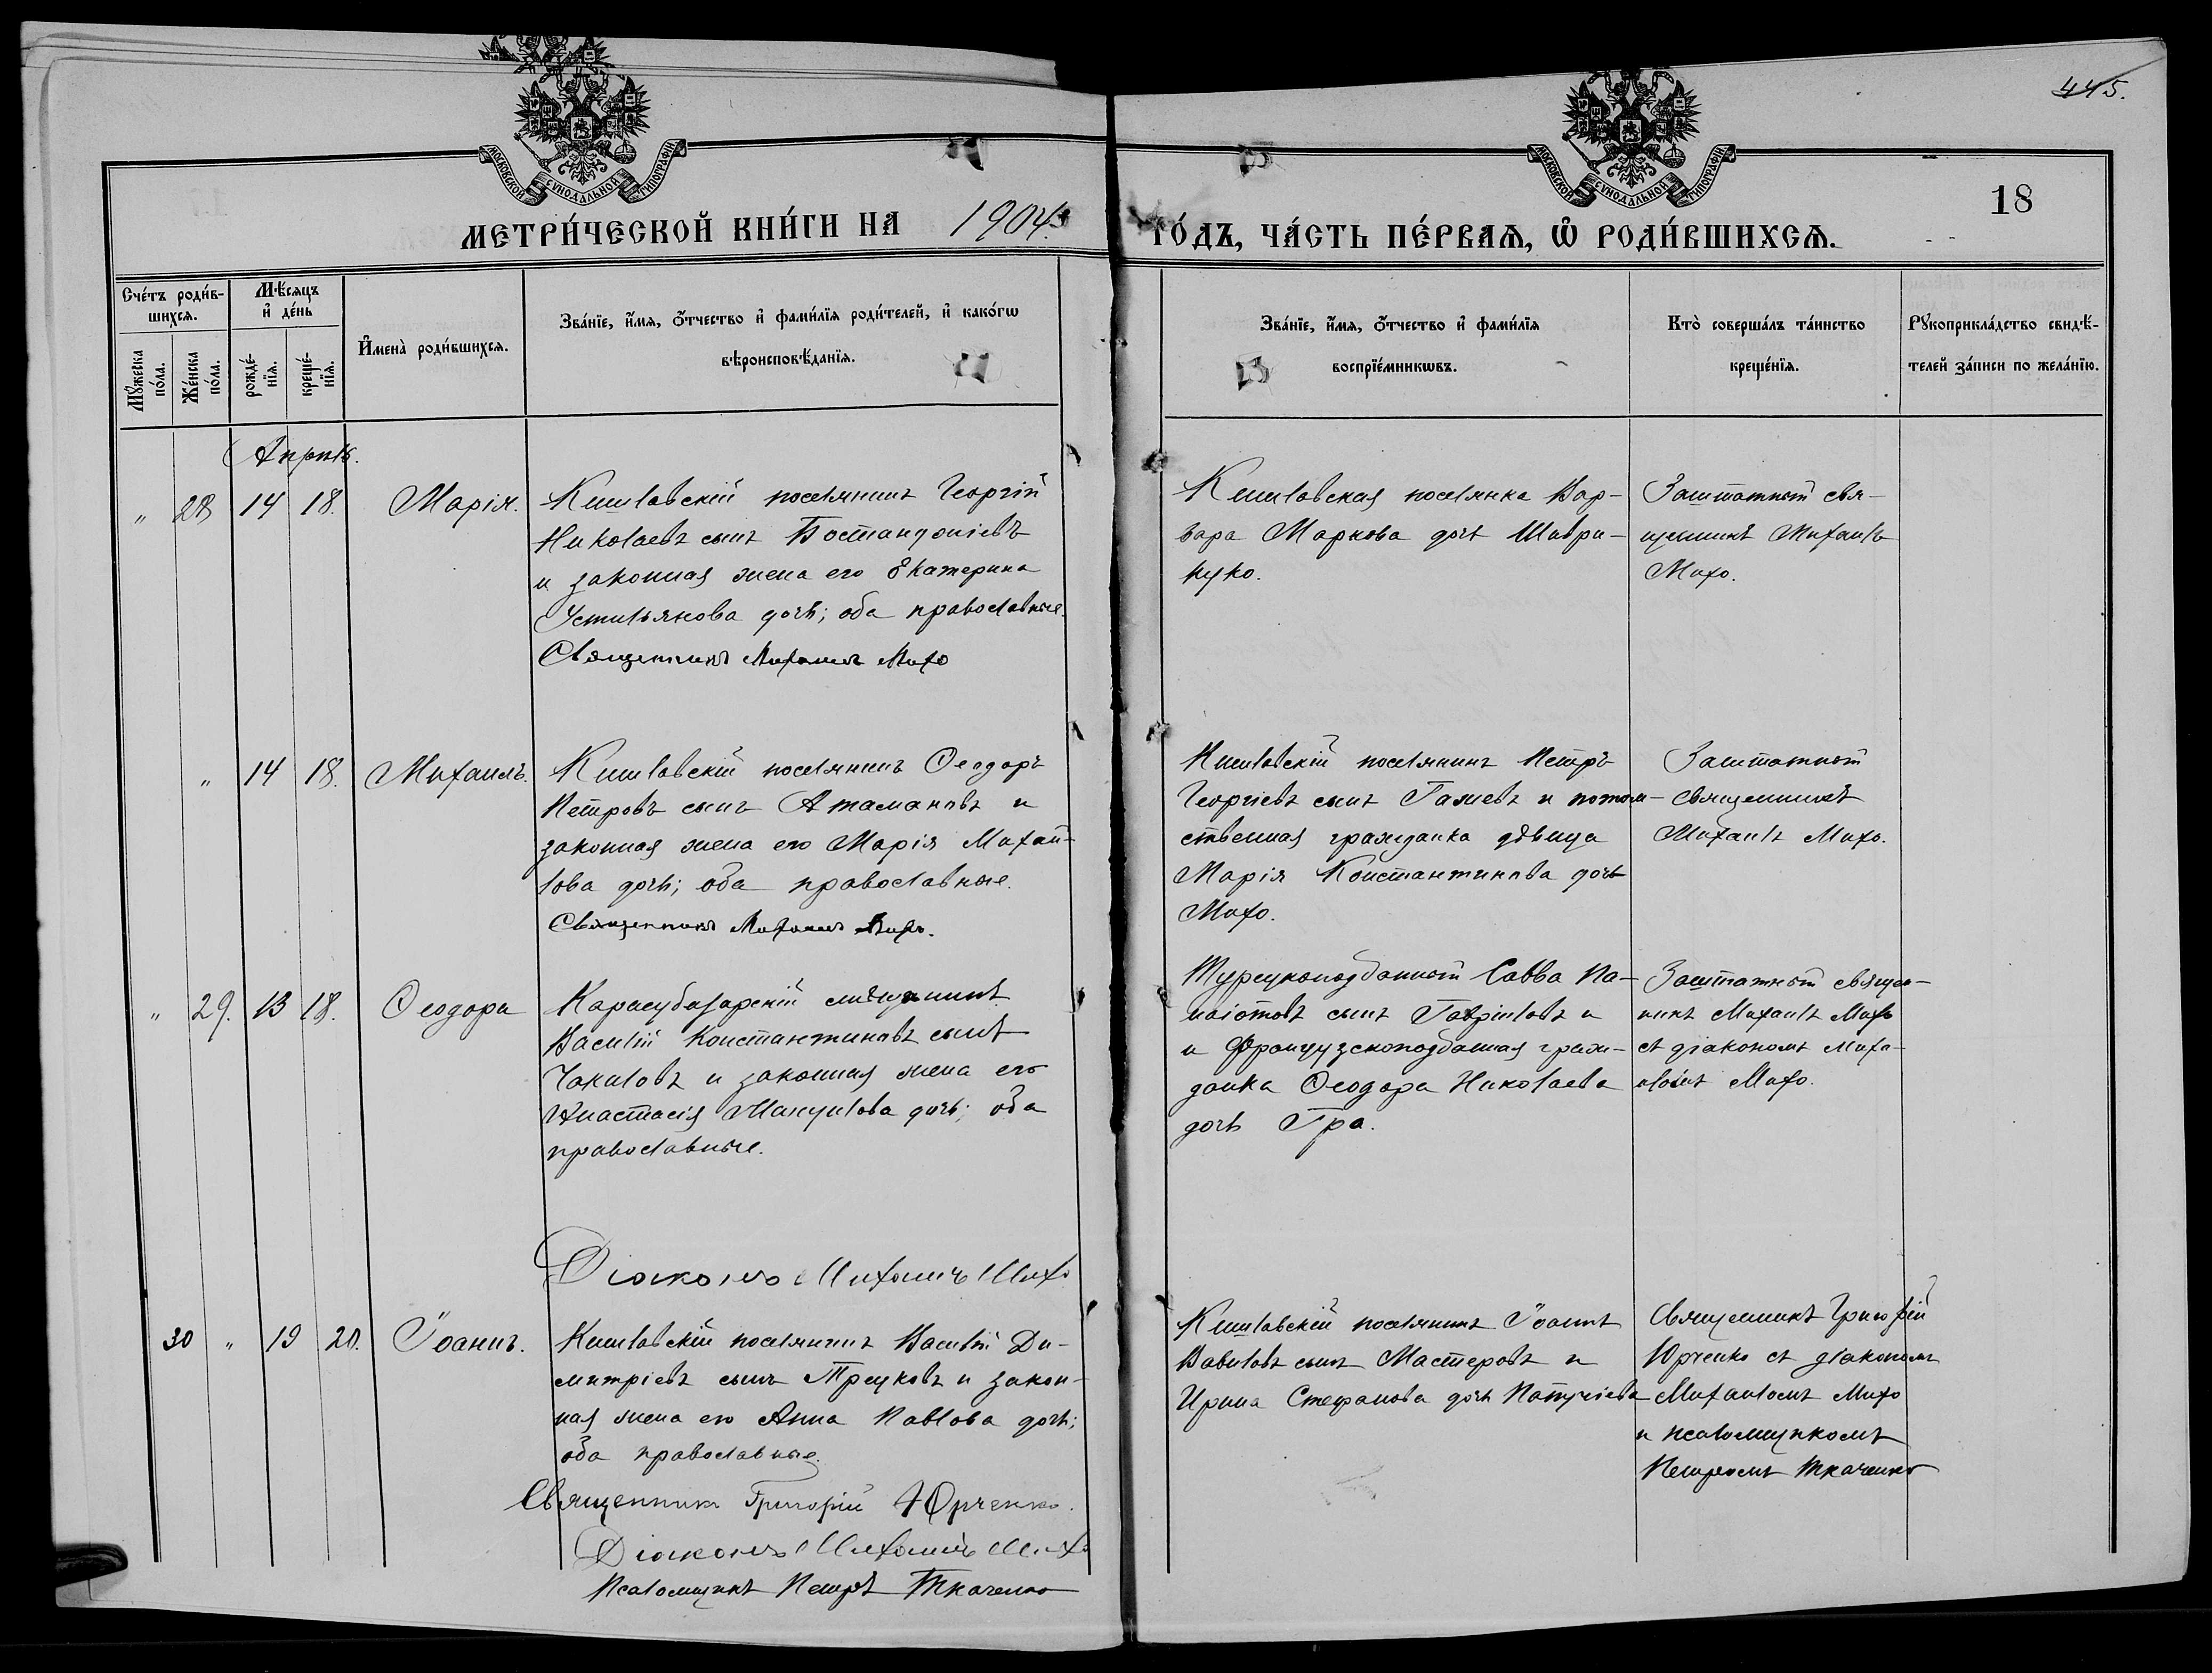 445.
МОСКОВСКОЙ СѴНОДАЛЬНОЙ ТИПОГРАФІИ
МОСКОВСКОЙ СѴНОДАЛЬНОЙ ТИПОГРАФІИ
18
МЕТРИ́ЧЕСКОЙ КНИ́ГИ НА 1904
ГО́ДЪ, ЧА́СТЬ ПЕ́РВАѦ, Ѡ РОДИ́ВШИХСѦ.
Сче́тъ роди́в-
шихсѧ.
Мꙋжеска
по́ла.
Же́нска
по́ла.
Мѣ́сѧцъ
и҆ де́нь
рожде́-
нїѧ.
креще́-
нїѧ.
И҆мена̀ роди́вшихсѧ.
Зва́нїе, и҆́мѧ, о҆́тчество и҆ фами́лїѧ роди́телей, и҆ како́гѡ
вѣроисповѣ́данїѧ.
Зва́нїе, и҆́мѧ, о҆́тчество и҆ фами́лїѧ
воспрїе́мникѡвъ.
Кто̀ соверша́лъ та́инство
креще́нїѧ.
Рꙋкоприкла́дство свидѣ́-
телей за́писи по жела́нїю.
Апрѣль.
" 28 14 18. Марія.
Кишлавскій поселянинъ Георгій
Николаевъ сынъ Бостанджіевъ
и законная жена его Екатерина
Устильянова дочь; оба православные.
Священникъ Михаилъ Михо
Кишлавская поселянка Вар-
вара Маркова дочь Шаври-
нуко.
Заштатный свя-
щенникъ Михаилъ
Михо.
" 14 18. Михаилъ.
Кишлавскій поселянинъ Ѳеодоръ
Петровъ сынъ Атамановъ и
законная жена его Марія Михай-
лова дочь; оба православные.
Священникъ Михаилъ Михо.
Кишлавскій поселянинъ Петръ
Георгіевъ сынъ Гажевъ и потом-
ственная гражданка дѣвица
Марія Константинова дочь
Михо.
Заштатный
священникъ
Михаилъ Михо.
" 29. 13 18. Ѳеодора
Карасубазарскій мѣщанинъ
Василій Константиновъ сынъ
Чакаловъ и законная жена его
Анастасія Мануилова дочь; оба
православные.
Діаконъ Михаилъ Михо
Турецкоподданный Савва Па-
наіотовъ сынъ Гавріиловъ и
и Французскоподданная граж-
данка Ѳеодора Николаева
дочь Гра.
Заштатный священ-
никъ Михаилъ Михо
съ діакономъ Миха-
иломъ Михо.
30 " 19 20. Іоаннъ.
Кишлавскій поселянинъ Василій Ди-
митріевъ сынъ Трецковъ и закон-
ная жена его Анна Павлова дочь;
оба православные.
Священникъ Григорій Юрченко.
Діаконъ Михаилъ Михо
Псаломщикъ Петръ Ткаченко
Кишлавскій поселянинъ Іоаннъ
Вавиловъ сынъ Мастеровъ и
Ирина Стефанова дочь Патучіева
Священникъ Григорій
Юрченко съ діакономъ
Михаиломъ Михо
и псаломщикомъ
Петромъ Ткаченко